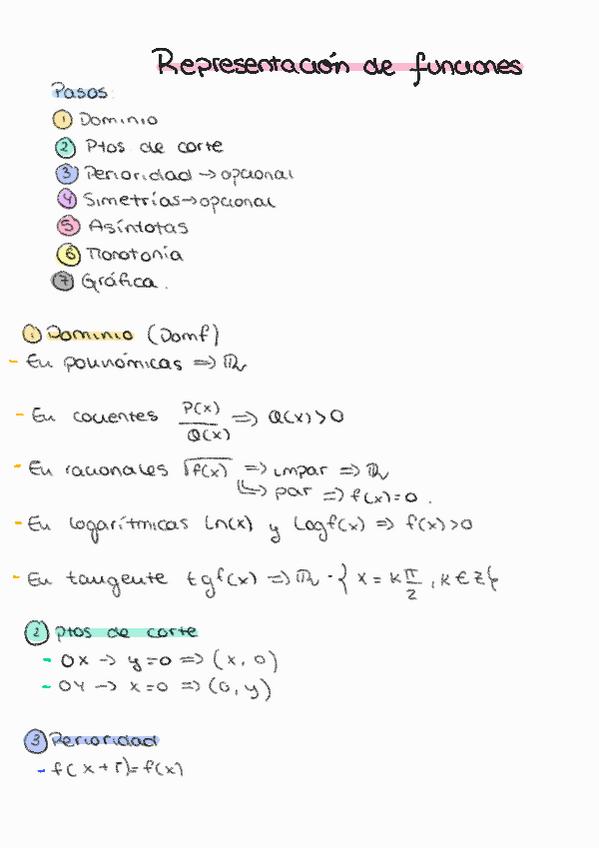 Representación de funciones
Pasos:
1 Dominio
2 Ptos de corte
3 Perioridad → opcional
4 Simetrías → opcional
5 Asíntotas
6 Monotonía
7 Gráfica.
1 Dominio (Domf)
- En polinómicas => ℝ
- En cocientes P(x)/Q(x) => Q(x)>0
- En racionales √f(x) => impar => ℝ
↳ par => f(x)=0.
- En logarítmicas Ln(x) y Logf(x) => f(x)>0
- En tangente tgf(x) => ℝ - { x = k π/2, k € Z}
2 ptos de corte
- OX → y=0 => (x, 0)
- OY → x=0 => (0, y)
3 Perioridad
- f(x+T)= f(x)